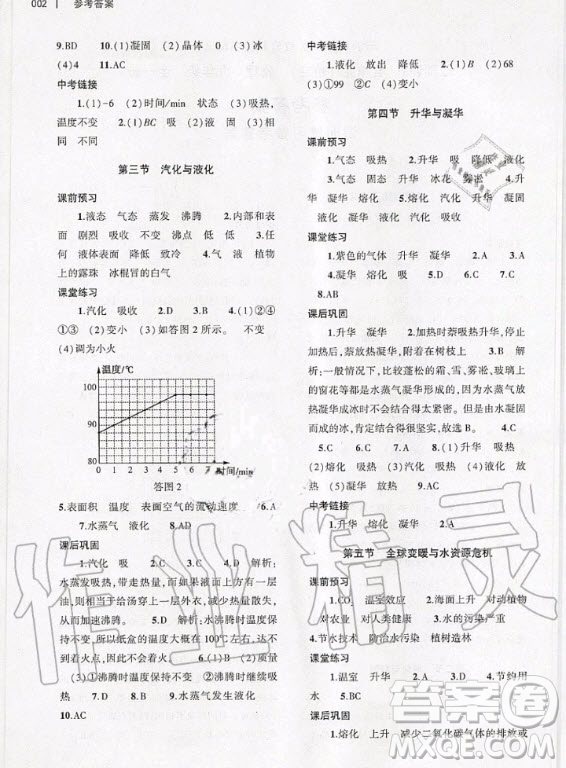 002 | 参考答案
9.BD 10.(1)凝固 (2)晶体 0 (3)冰
(4)4 11.AC
中考链接
1.(1)-6 (2)时间/min 状态 (3)吸热,
温度不变 2.(1)BC 吸 液 固 (3)相
同 不同
第三节 汽化与液化
课前预习
1.液态 气态 蒸发 沸腾 2.内部和表
面 剧烈 吸收 不变 沸点 低 低 3.气
态 液体表面 降低 致冷 4.气 液 植物
上的露珠 冰棍冒的白气
课堂练习
1.汽化 吸收 2.D 3.B 4.(1)②④
①③ (2)变小 (3)如答图2所示。 不变
(4)调为小火
温度/℃
100
90
80
0 1 2 3 4 5 6 7 时间/min
答图2
5.表面积 温度 表面空气的流动速度 6.A
7.水蒸气 液化 8.AD
课后巩固
1.汽化 吸 2.C 3.D 4.D 解析:
水蒸发吸热,带走热量,而油层覆盖在水面上,
相当于给汤穿上一层外衣,减少热量散失,从
而加速沸腾。 5.D 6.B 7.B 解析:水沸腾
后,所以纸盒的温度最高大约在100℃左右,达
不到纸的着火点。 8.(1)B (2)质量
(3)①沸腾时温度保持不变 ②沸腾时继续吸
热 9.(1)B (2)不变 (3)水蒸气发生液化
10.AC
中考链接
1.液化 放出 降低 2.(1)B (2)68
(3)①99 ②C (4)变小
第四节 升华与凝华
课前预习
1.气态 吸热 2.升华 吸 降低 液化
3.气态 固态 升华 冰花 雾凇 4.升华
凝华 熔化 吸热 5.放热 升华 凝固
液化 凝华 熔化 汽化 吸收
课堂练习
1.紫色的气体 升华 凝华 2.A 3.A
4.升华 凝华 熔化 吸 5.D 6.C 7.C
8.AB
课后巩固
1.升华 凝华 2.加热时萘吸热升华,停止
加热,萘放热凝华,附着在树枝上 3.B 解
析:一般情况下,比较蓬松的霜、雪、雾凇、玻璃上
的窗花等都是由水蒸气凝华形成的,因为水蒸气放
热凝华成冰时不会结合得太紧密。但由水凝固
而成的冰,则会结合得很坚实,故选B。 4.C
5.C 6.B 7.C 8.(1)液化 放热
(2)熔化 吸热 (3)升华 吸热 (4)汽化
吸热 (5)凝华 放热 9.AC
中考链接
1.升华 熔化 凝华 2.A
第五节 全球变暖与水资源危机
课前预习
1.CO₂ 温室效应 2.海面上升 对动植物
对农业 对人类健康 3.水的污染严重
4.节水技术 防治水污染 植树造林
课堂练习
1.温室 升华 2.D 3.A 4.节约用
水 5.BC
课后巩固
1.熔化 上升 减少二氧化碳气体的排放或
作业精灵
作业精灵
答案圈
MXQE.COM